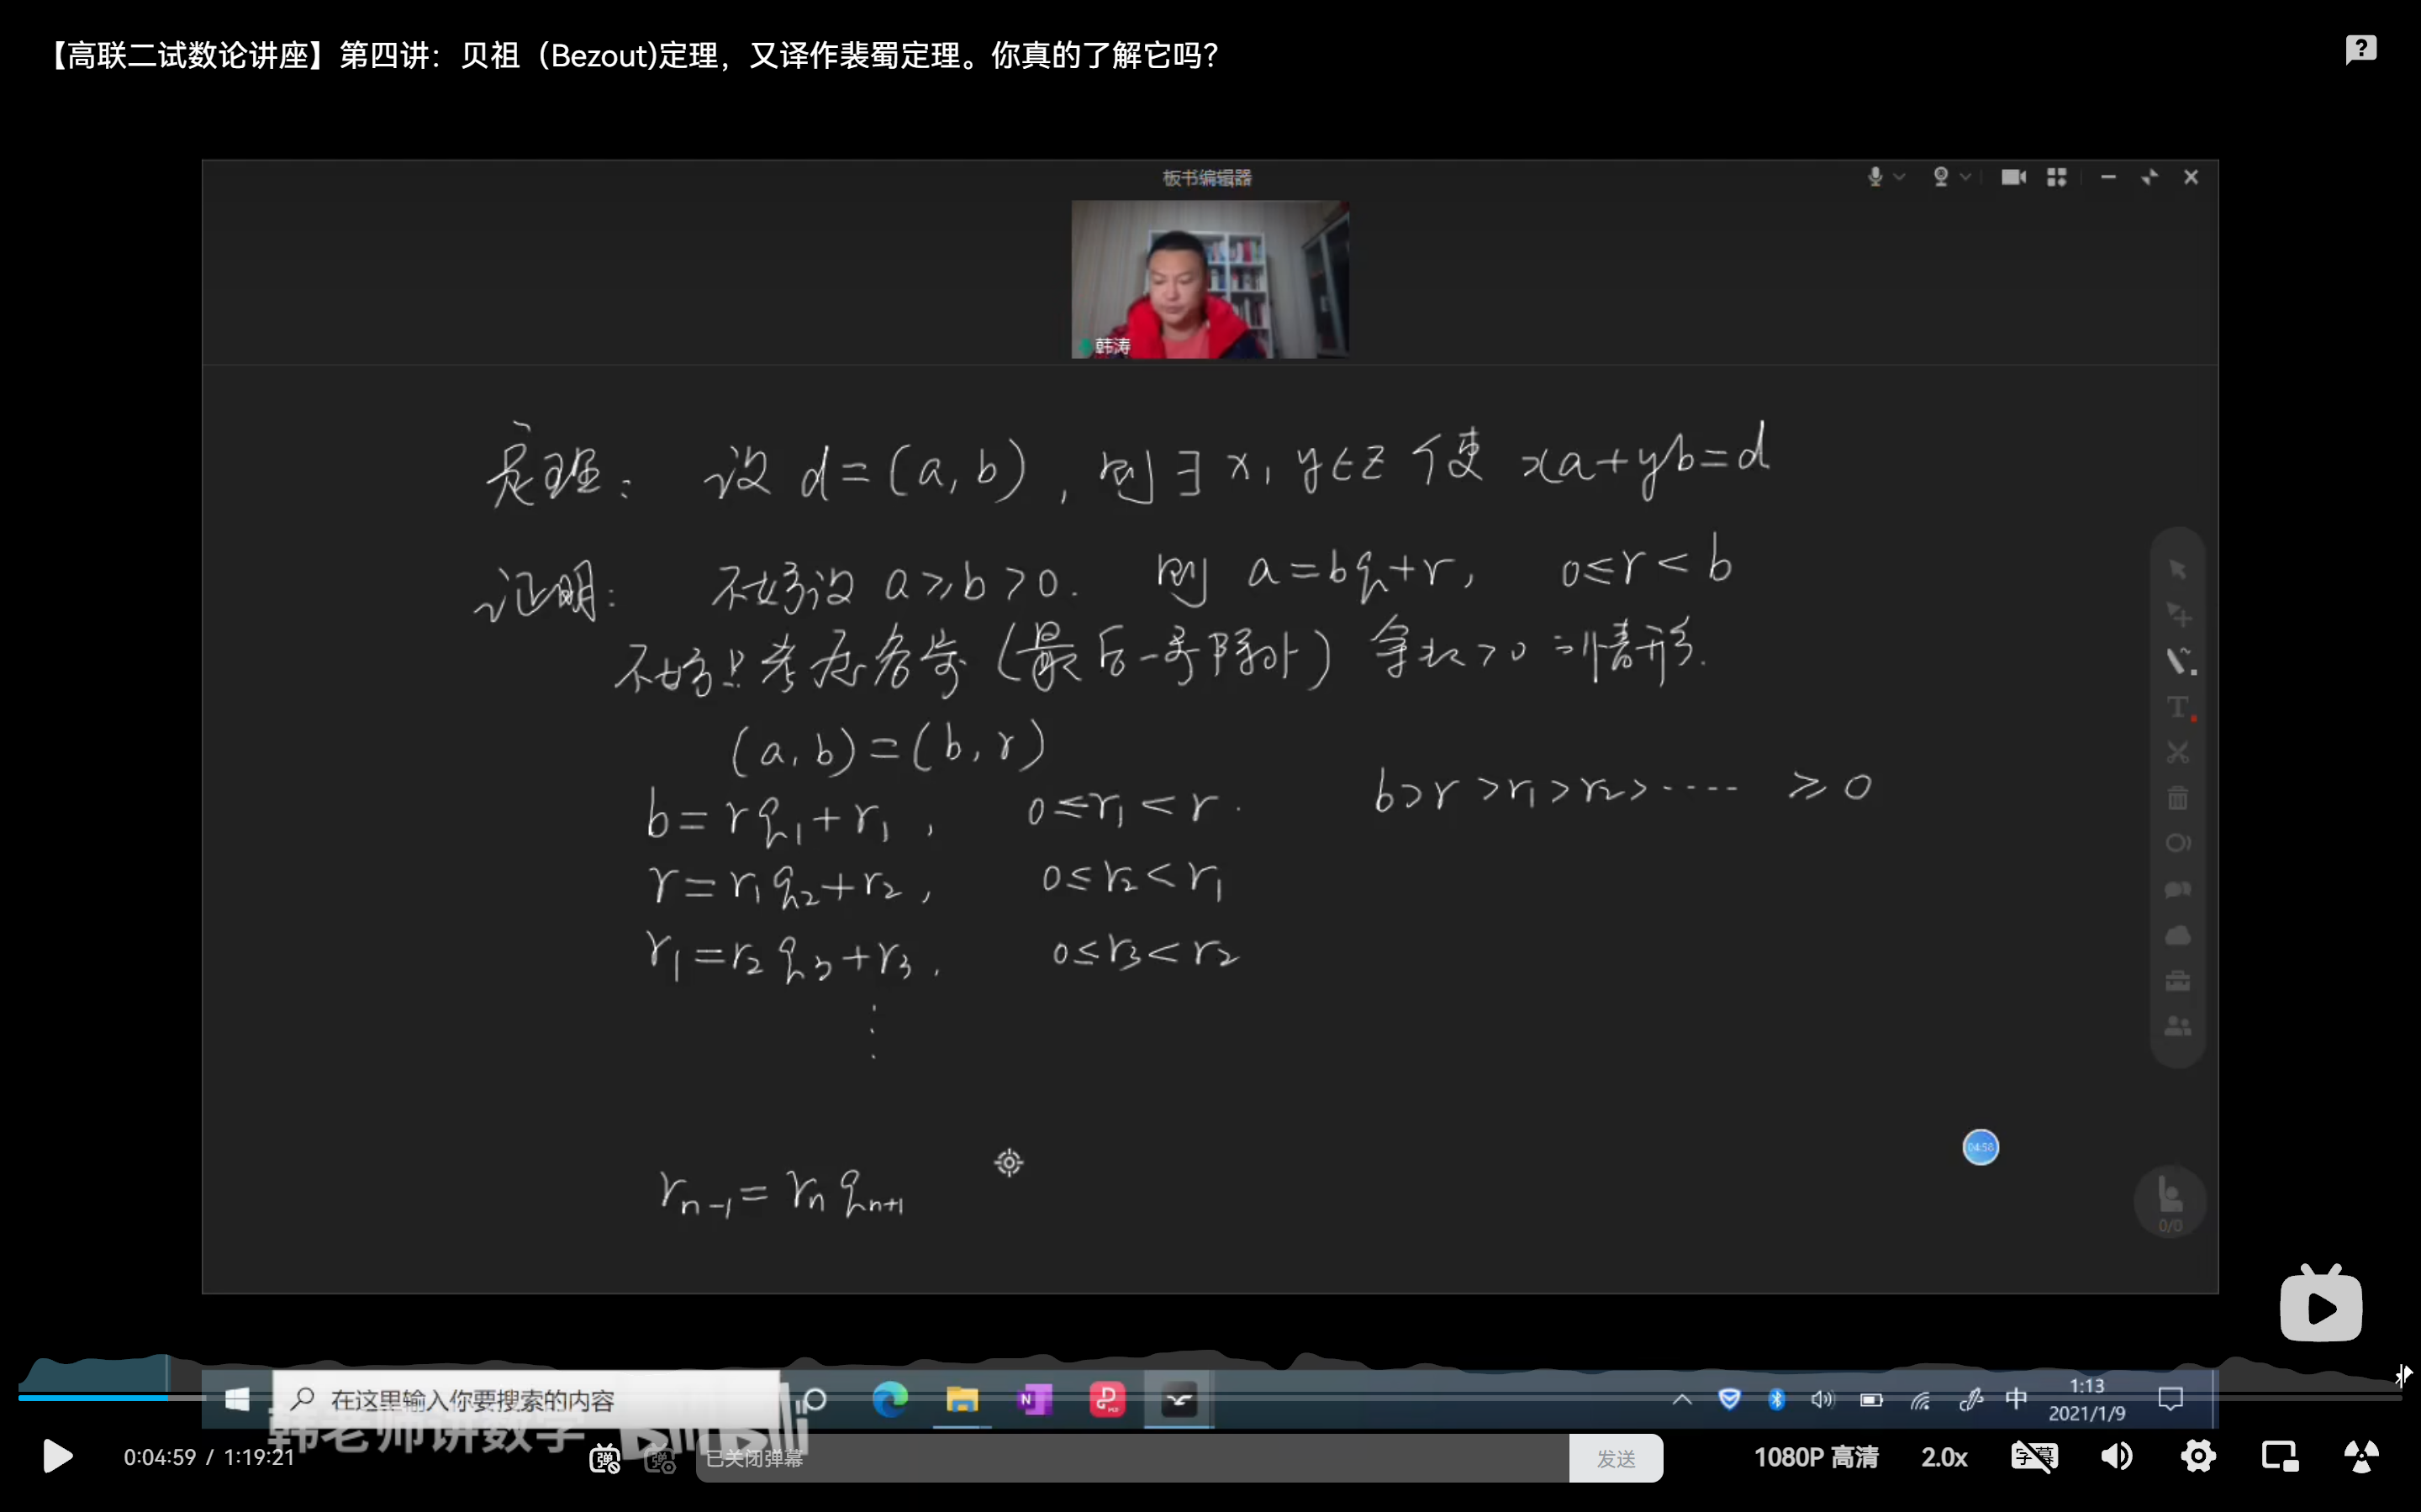 【高联二试数论讲座】第四讲：贝祖（Bezout)定理，又译作裴蜀定理。你真的了解它吗？
板书编辑器
韩涛
定理： 设 d=(a,b), 则∃x,y∈Z 使 xa+yb=d
证明： 不妨设 a≥b>0. 则 a=bq+r, 0≤r<b
不妨只考虑各步(最后一步除外)余数>0之情形.
(a,b)=(b,r)
b=rq₁+r₁, 0≤r₁<r. b>r>r₁>r₂>····· ≥0
r=r₁q₂+r₂, 0≤r₂<r₁
r₁=r₂q₃+r₃. 0≤r₃<r₂
⋮
rₙ₋₁=rₙqₙ₊₁
04:58
0/0
在这里输入你要搜索的内容
中
1:13
2021/1/9
韩老师讲数学 bilibili
0:04:59 / 1:19:21
弹
已关闭弹幕
发送
1080P 高清
2.0x
字幕